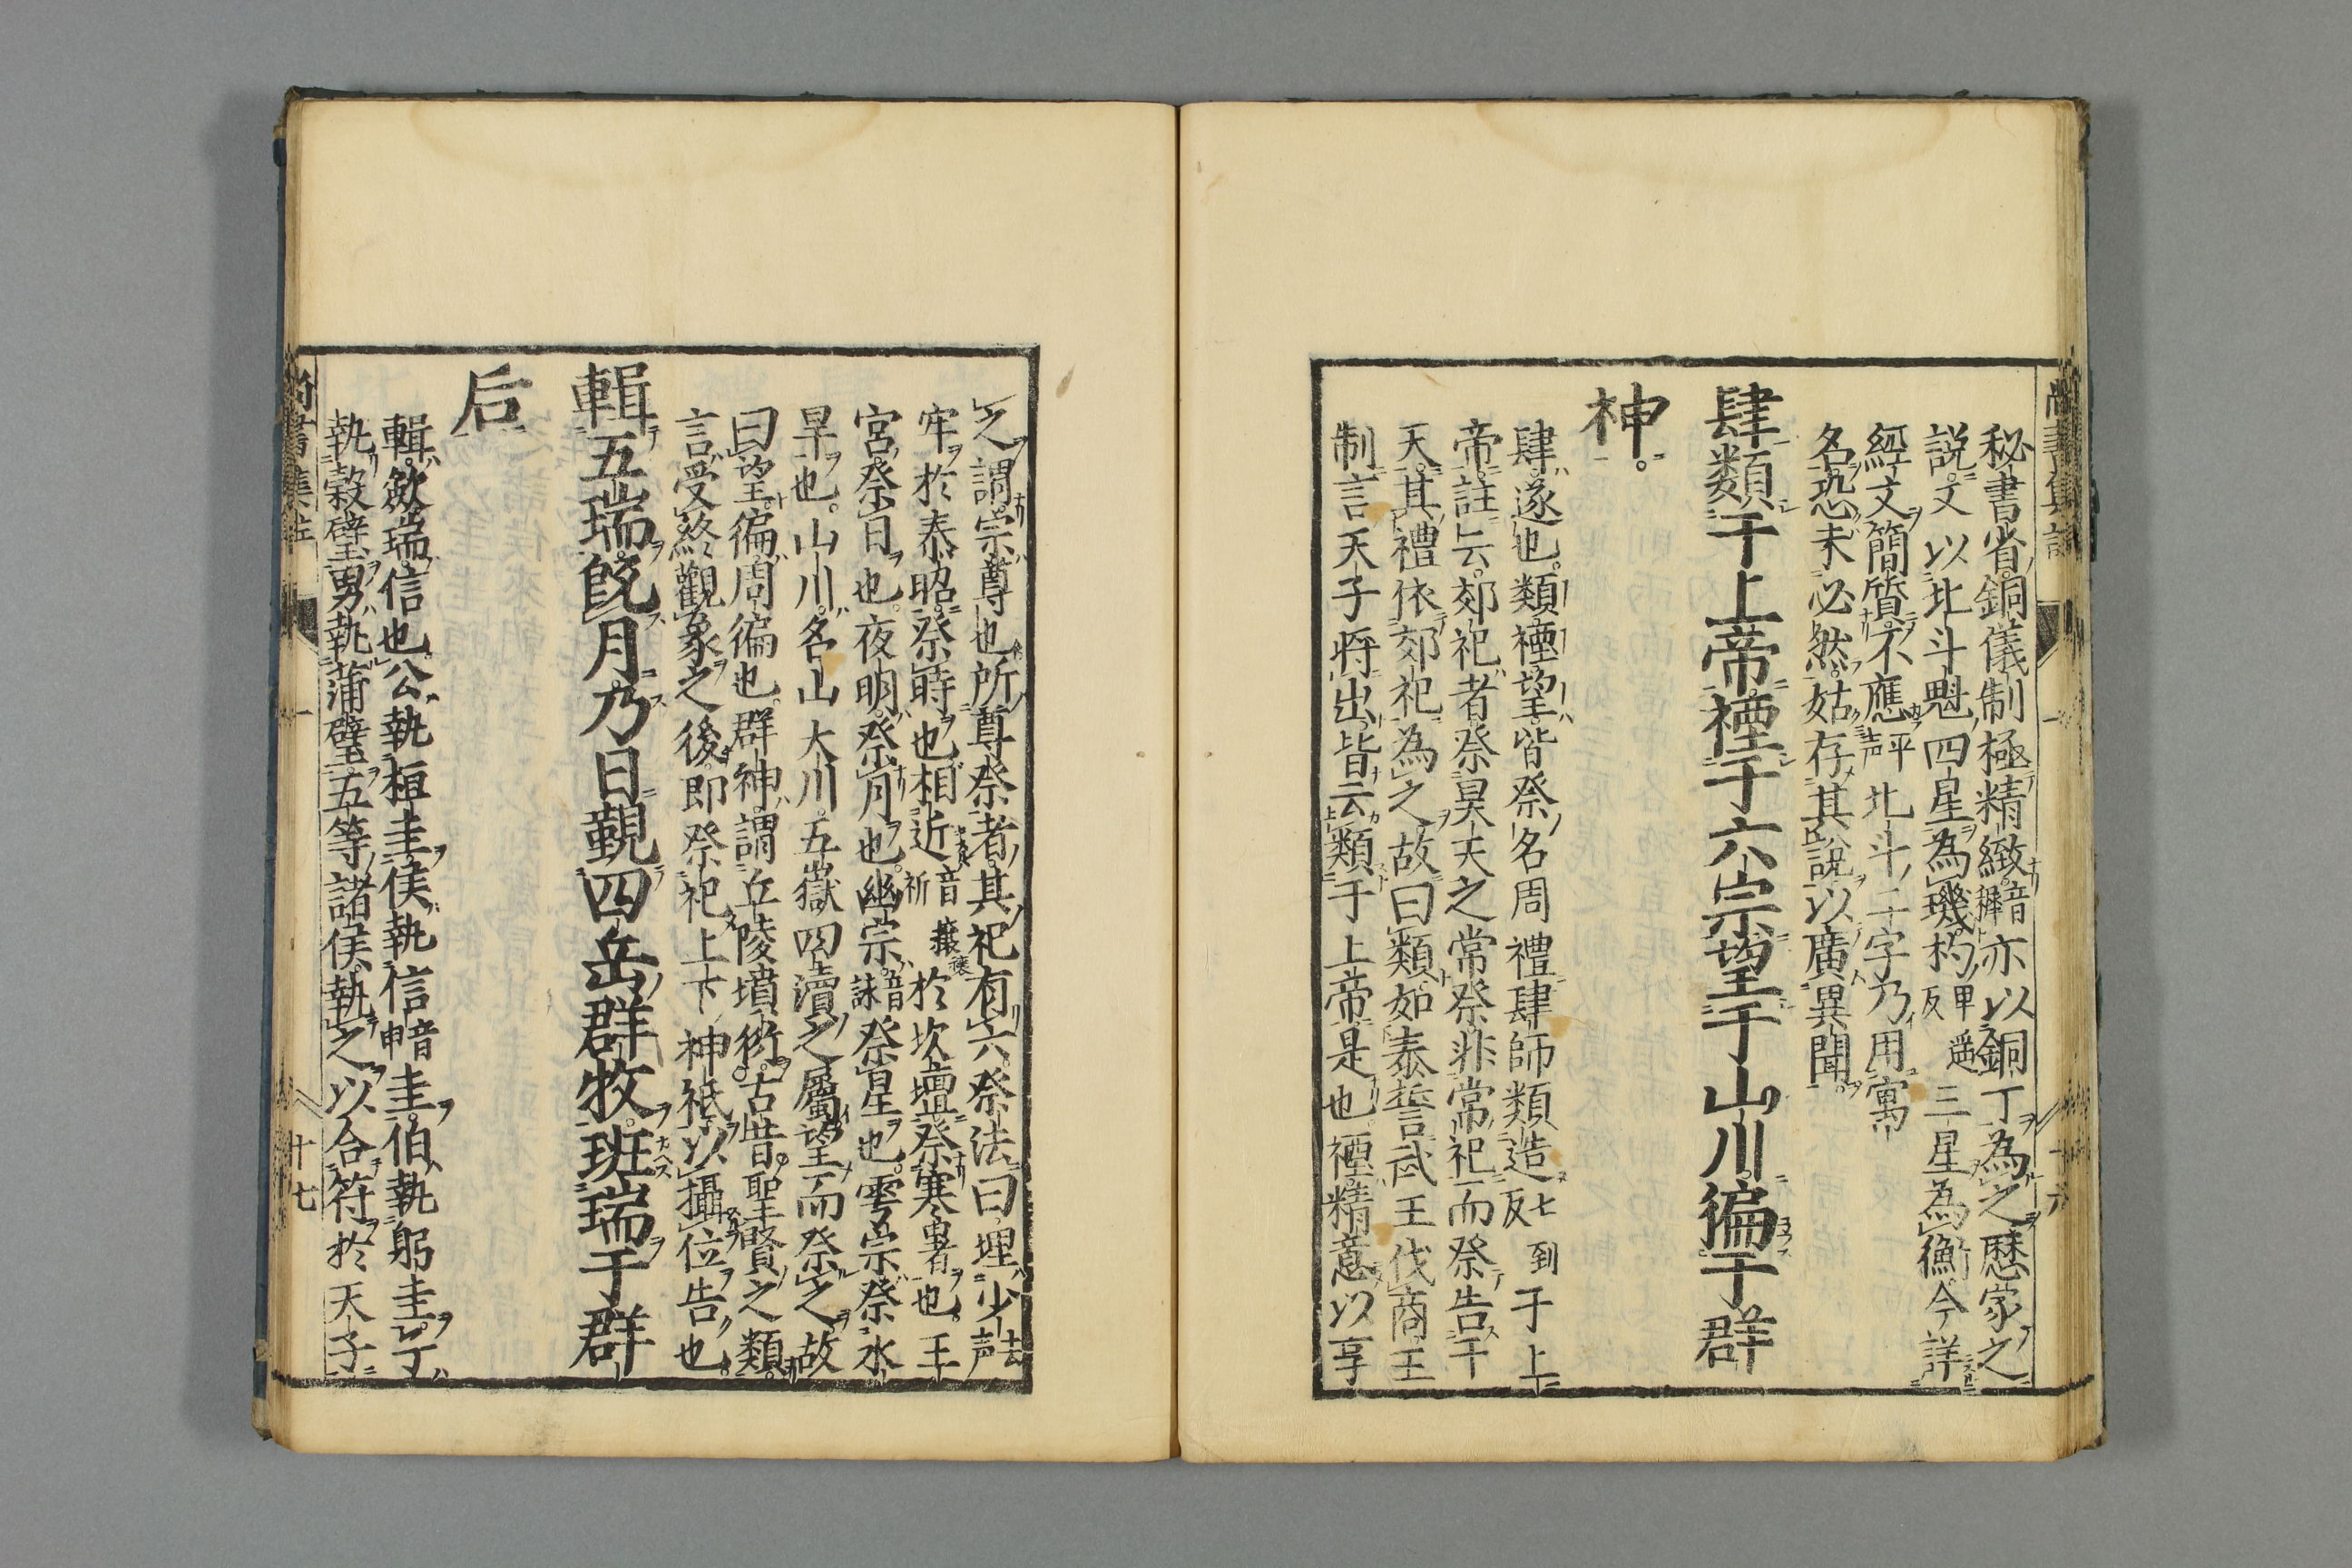 秘書省銅儀制極精緻音穉亦以銅丁為之歷家之
説又以北斗魁四星為璣杓甲遥反三星為衡今詳
經文簡質不應平声北斗二字乃用寓
名恐未必然姑存其說以廣異聞
肆類于上帝禋于六宗望于山川徧于群
神
肆遂也類禋望皆祭名周禮肆師類造七到反于上
帝註云郊祀者祭昊天之常祭非常祀而祭告于
天其禮依郊祀為之故曰類如泰誓武王伐商王
制言天子將出皆云類于上帝是也禋精意以享
之謂宗尊也所尊祭者其祀有六祭法曰埋少去声
牢於泰昭祭時也相近音祈於坎壇祭寒暑也王
宮祭日也夜明祭月也幽宗音祭星也雩宗祭水
旱也山川名山大川五嶽四瀆之屬望而祭之故
曰望徧周徧也群神謂丘陵墳衍古昔聖賢之類
言受終觀象之後即祭祀上下神祇以攝位告也
輯五瑞既月乃日覲四岳群牧班瑞于群
后
輯斂瑞信也公執桓圭侯執信音申圭伯執躬圭子
執穀璧男執蒲璧五等諸侯執之以合符於天子
尚書集註 一 十七